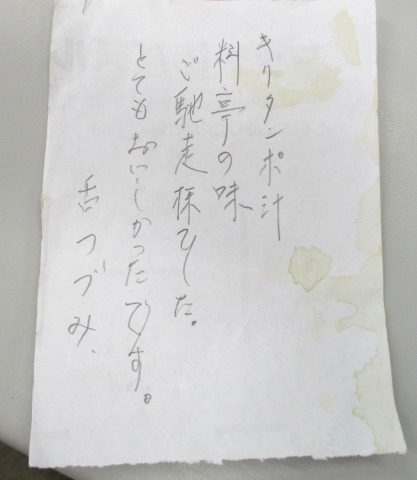 キリタンポ汁
料亭の味
ご馳走様でした。
とてもおいしかったです。
舌つづみ、